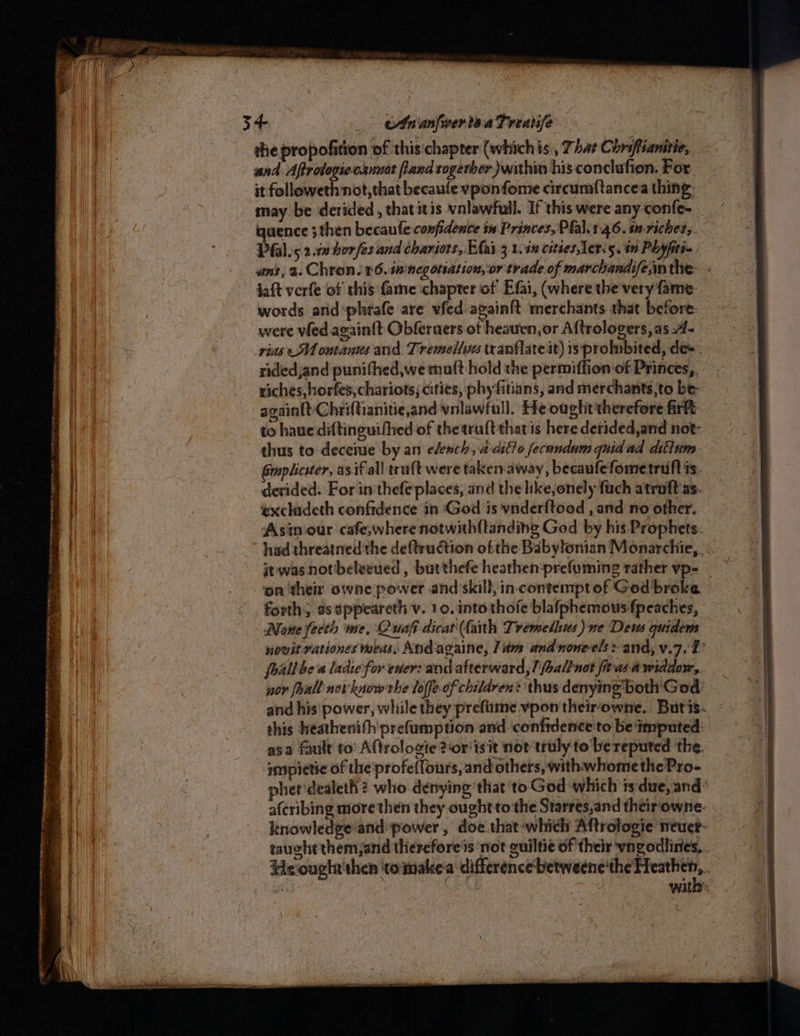 34 An answer to a Treatise
the proposition of this chapter (which is, That Christianitie,
and Astrologie cannot stand together) within his conclusion. For
it followeth not, that because vpon some circumstance a thing
may be derided, that it is vnlawfull. If this were any conse-
quence; then because confidence in Princes, Psal. 146. in riches,
Psal. 52. in horses and chariots, Esai 31. in cities, Ier. 5. in Physiti-
ans, 2. Chron. 16. in negotiation, or trade of marchandise, in the
last verse of this same chapter of Esai, (where the very same
words and phrase are vsed against merchants that before
were vsed against Obseruers of heauen, or Astrologers, as A-
rias Montanus and Tremellius translate it) is prohibited, de-
rided, and punished, we must hold the permission of Princes,
riches, horses, chariots, cities, physitians, and merchants, to be
against Christianitie, and vnlawfull. He ought therefore first
to haue distinguished of the trust that is here derided, and not
thus to deceiue by an elench, a dicto secundum quid ad dictum
simpliciter, as if all trust were taken away, because some trust is
derided. For in these places, and the like, onely such a trust as
excludeth confidence in God is vnderstood, and no other.
As in our case, where notwithstanding God by his Prophets
had threatned the destruction of the Babylonian Monarchie,
it was not beleeued, but these heathen presuming rather vp-
on their owne power and skill, in contempt of God broke
forth, as appeareth v. 10. into those blasphemous speaches,
None seeth me, Quasi dicat (saith Tremellius) ne Deus quidem
novit rationes meas. And againe, I am and none els: and, v. 7. I
shall be a ladie for euer: and afterward, I shall not sit as a widdow,
nor shall not know the losse of children: thus denying both God
and his power, while they presume vpon their owne. But is
this heathenish presumption and confidence to be imputed
as a fault to Astrologie? or is it not truly to be reputed the
impietie of the professours, and others, with whome the Pro-
phet dealeth? who denying that to God which is due, and
ascribing more then they ought to the Starres, and their owne
knowledge and power, doe that which Astrologie neuer
taught them, and therefore is not guiltie of their vngodlines.
He ought then to make a difference betweene the Heathen,
with